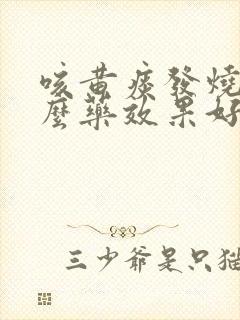 咳黄痰發燒
麼藥效果好
三少爺是只猫